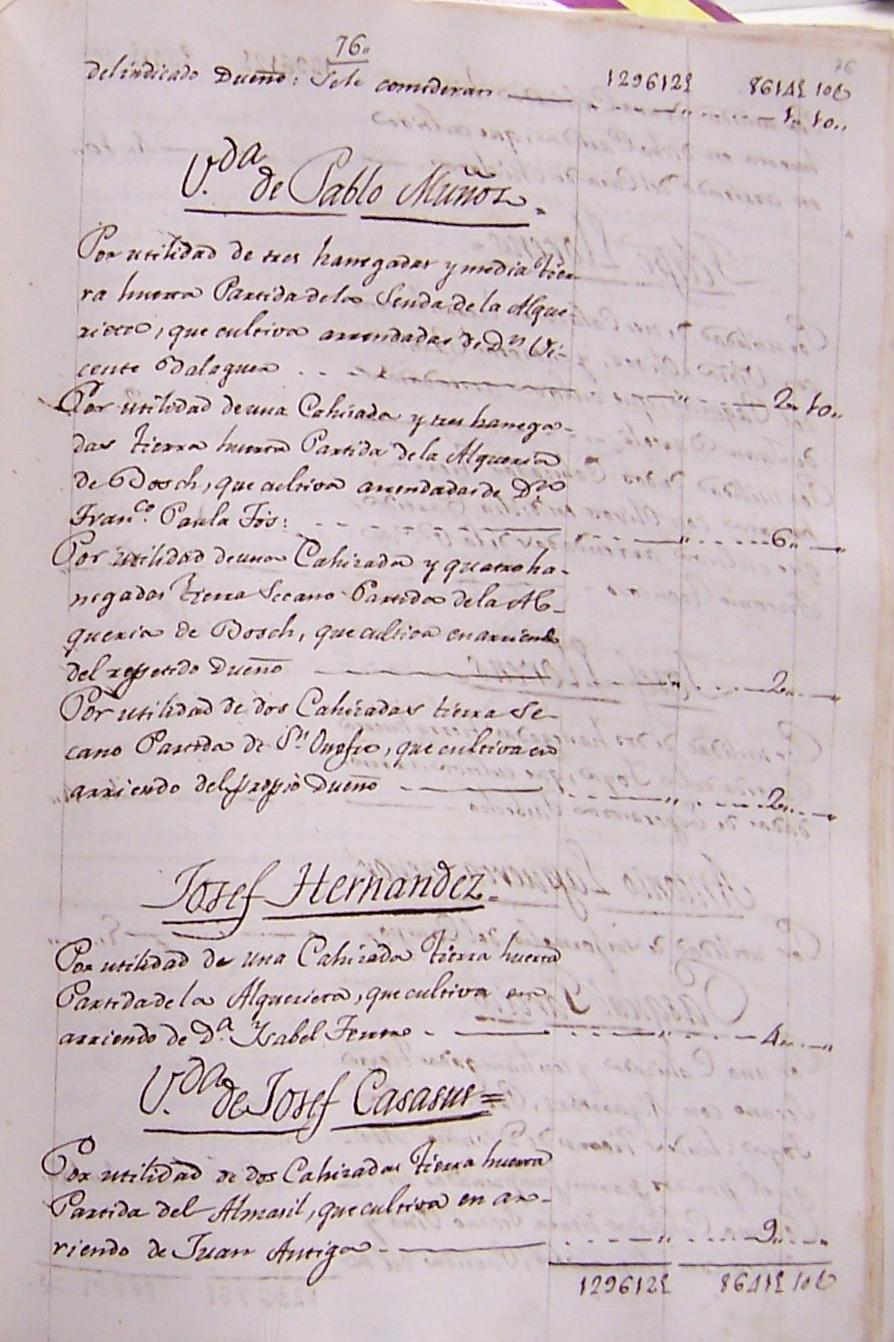 76"
129612£ 8614£ 10
del indicado Dueño: Se le consideran 1" 10"
V.da de Pablo Muñoz
Por utilidad de tres hanegadas y media tier-
ra huerta Partida de la Senda de la Alque-
rieta, que cultiva arrendadas de Dn. Vi-
cente Balaguer 2" 10"
Por utilidad de una Cahizada y tres hanega-
das tierra huerta Partida de la Alqueria
de Bosch, que cultiva arrendadas de Dn.
Franco. Paula Fos: 6"
Por utilidad de una Cahizada y quatro ha-
negadas tierra Secano Partida de la Al-
queria de Bosch, que cultiva en arriendo
del repetido Dueño 2"
Por utilidad de dos Cahizadas tierra Se-
cano Partida de Sn. Onofre, que cultiva en
arriendo del propio Dueño 2"
Josef Hernandez
Por utilidad de una Cahizada tierra huerta
Partida de la Alquerieta, que cultiva en
arriendo de Da. Ysabel 4"
V.da de Josef Casasus=
Por utilidad de dos Cahizadas tierra huerta
Partida del Almasil, que cultiva en ar-
riendo de Juan Antiga 9"
129612£ 8641£ 10